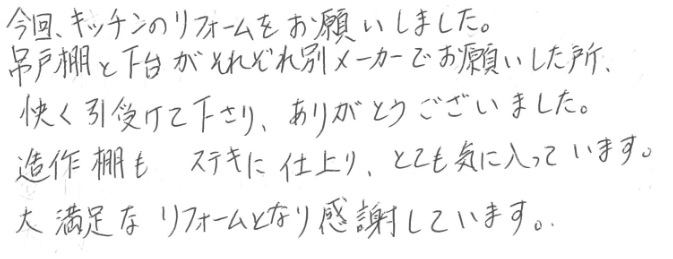 今回、キッチンのリフォームをお願いしました。
吊戸棚と下台がそれぞれ別メーカーでお願いした所、
快く引受けて下さり、ありがとうございました。
造作棚も ステキに仕上り、とても気に入っています。
大満足なリフォームとなり感謝しています。